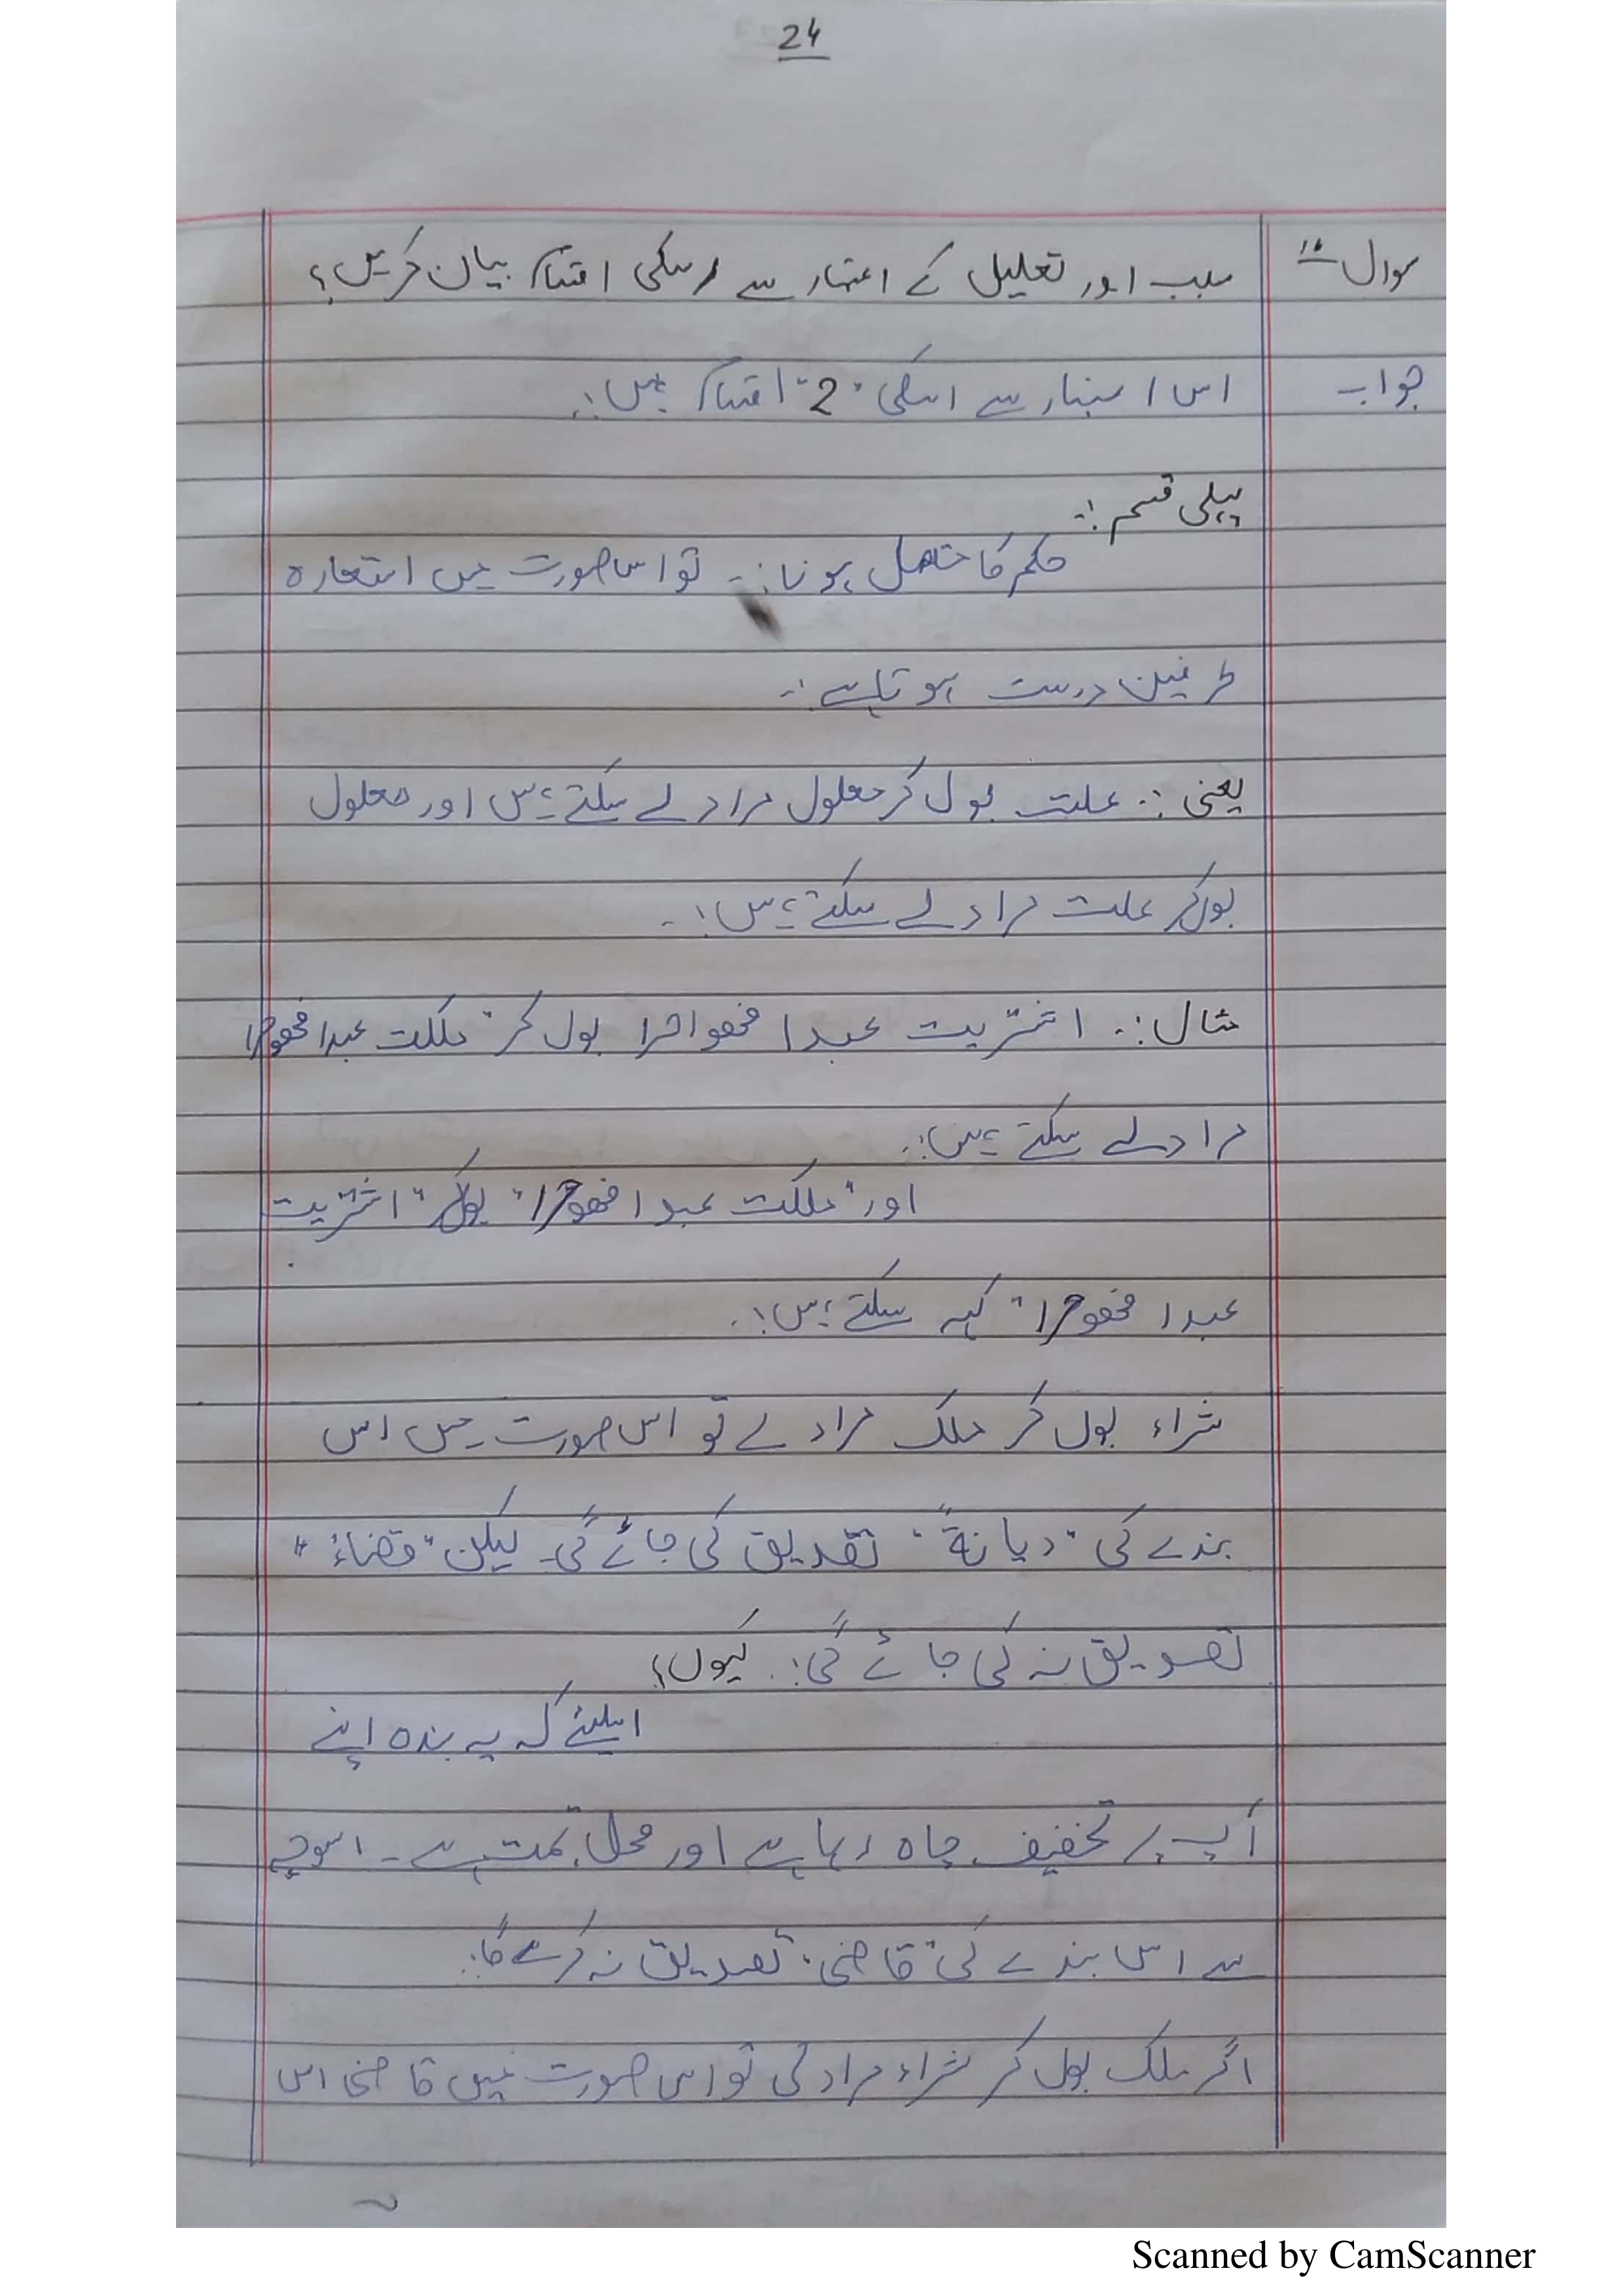 24
سوال ١٥ سبب اور تعلیل کے اعتبار سے اسکی اقسام بیان کریں؟
جواب اس اعتبار سے اسکی "2" اقسام ہیں:.
پہلی قسم :-
حکم کا متصل ہونا:- تو اس صورت میں استعارہ
طرفین درست ہوتا ہے:-
یعنی:. علت بول کر معلول مراد لے سکتے ہیں اور معلول
بول کر علت مراد لے سکتے ہیں:-
مثال:. اشتریت عبدا فھو حرا بول کر "ملکت عبدا فھو حرا
مراد لے سکتے ہیں:.
اور "ملکت عبدا فھو حرا" بول کر "اشتریت
عبدا فھو حرا" کہہ سکتے ہیں:.
شراء بول کر ملک مراد لے تو اس صورت میں اس
بندے کی "دیانۃً" تصدیق کی جائے گی۔ لیکن "قضاءً"
تصدیق نہ کی جائے گی:. کیوں؟
اسلیئے کہ یہ بندہ اپنے
آپ پر تخفیف چاہ رہا ہے اور محل تہمت ہے۔ اسوجہ
سے اس بندے کی "قاضی" تصدیق نہ کرے گا:.
اگر ملک بول کر شراء مراد لی تو اس صورت میں قاضی اس
Scanned by CamScanner